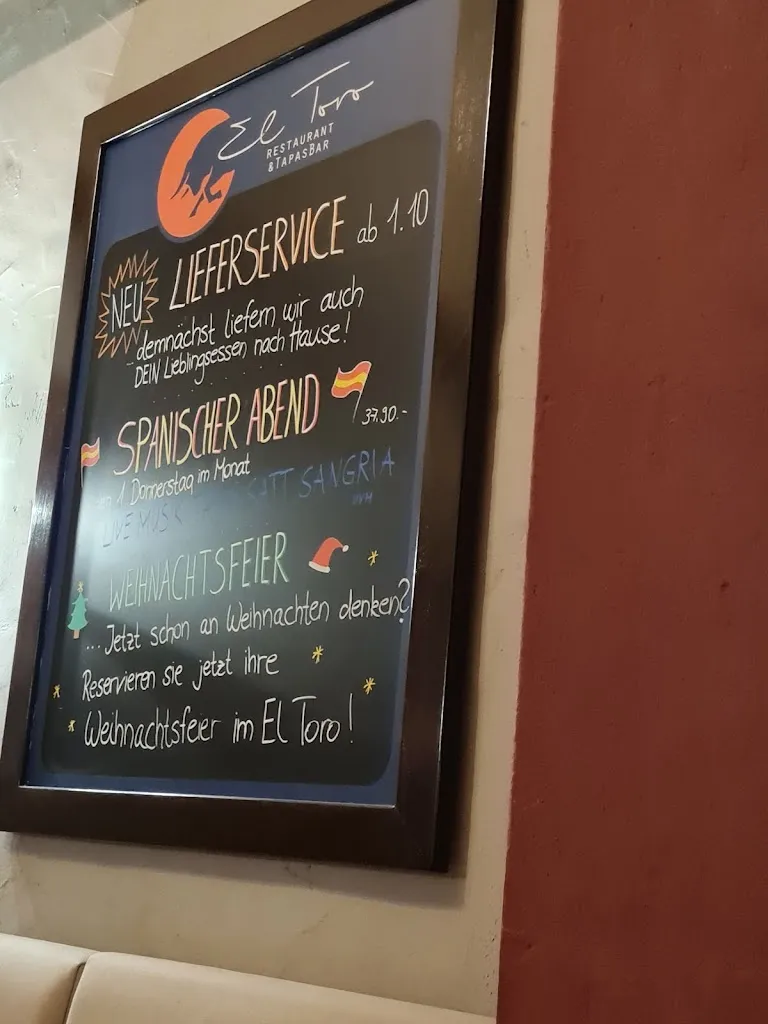 El Toro
RESTAURANT
& TAPASBAR
NEU
LIEFERSERVICE ab 1.10
demnächst liefern wir auch
DEIN Lieblingsessen nach Hause!
SPANISCHER ABEND
37.90.-
1. Donnerstag im Monat
LIVE MUSIK SATT SANGRIA
WEIHNACHTSFEIER
... Jetzt schon an Weihnachten denken?
Reservieren sie jetzt ihre
Weihnachtsfeier im El Toro!